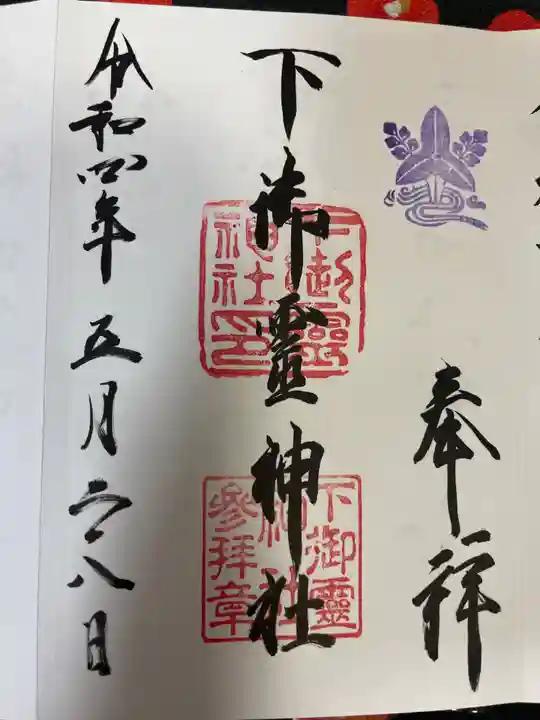 奉拝
下御靈神社
下御靈
神社印
下御靈
神社
參拝章
令和四年 五月二十八日